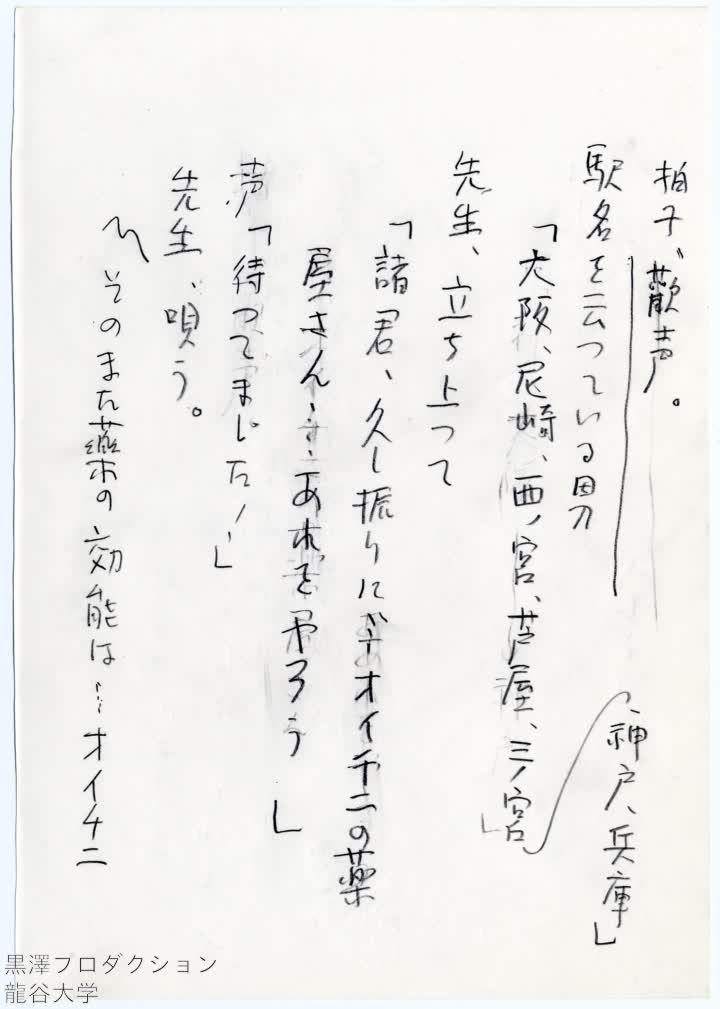 拍手、歓声。
駅名を云つている男
「大阪、尼崎、西ノ宮、芦屋、三ノ宮、
神戸、兵庫」
先生、立ち上つて
「諸君、久し振りに オイチニの薬
屋さん…あれをやろう」
声「待つてました!」
先生、唄う。
〽そのまた薬の効能は…オイチニ
黒澤プロダクション
龍谷大学